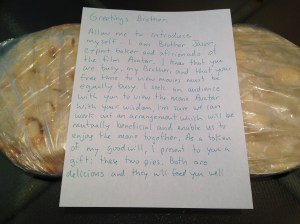 Greetings Brother,
Allow me to introduce
myself. I am Brother Jason
expert baker and aficionado of
the film Avatar. I know that you
are busy, my brother, and that your
free time to view movies must be
equally busy. I seek an audience
with you to view the movie Avatar
with your wisdom. I'm sure we can
work out an arrangement which will be
mutually beneficial and enable us to
enjoy the movie together. As a token
of my goodwill, I present to you a
gift: these two pies. Both are
delicious and they will feed you well